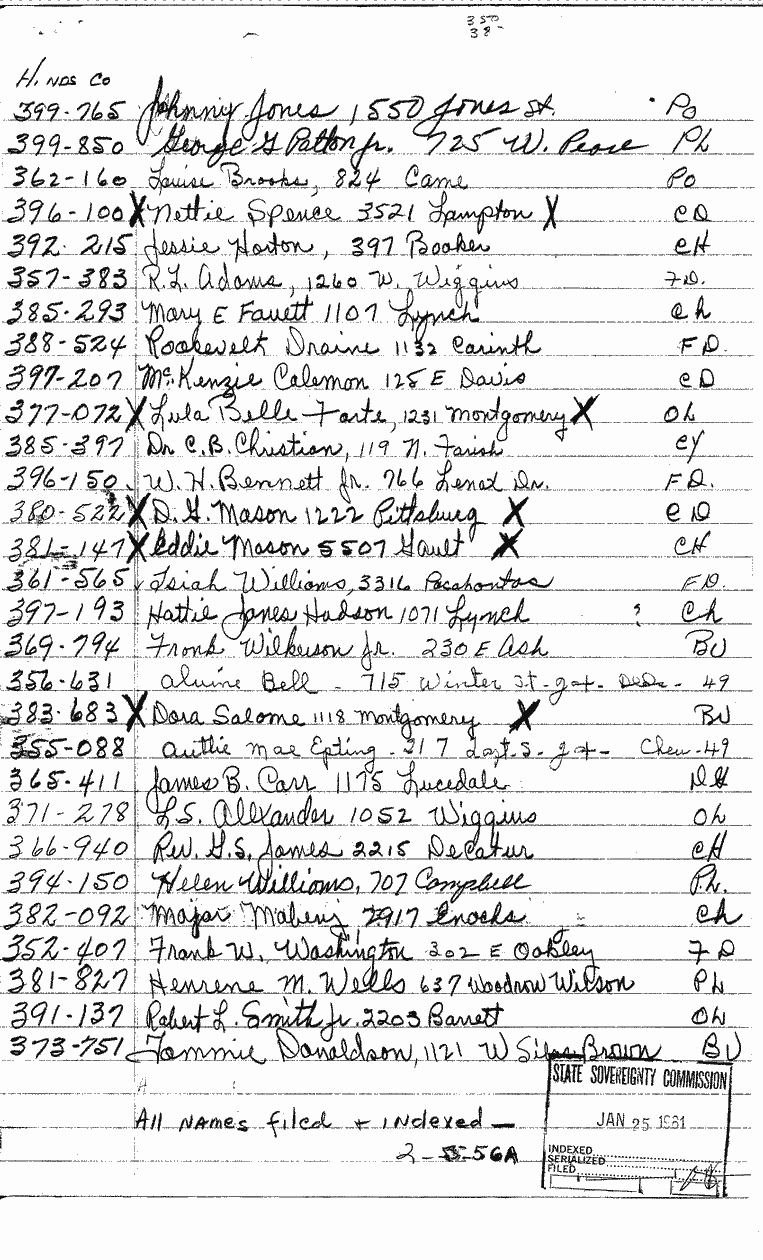 350
38
Hinds Co
399-765 Johnny Jones, 1550 Jones St. Po
399-850 George G Patton Jr. 725 W. Pease Ph
362-160 Louise Brooks, 824 Came Po
396-100 X Nettie Spence 3521 Lampton X CD
392-215 Jessie Horton, 397 Booker CH
357-383 R.L. Adams, 1260 W. Wiggins FD.
385-293 Mary E Favett 1107 Lynch Ch
388-524 Roosevelt Draine 1132 Corinth FD.
397-207 McKenzie Colemon 125 E Davis CD
377-072 X Lula Belle Forte, 1231 Montgomery X Oh
385-397 Dr C.B. Christian, 119 N. Farish Cy
396-150 W. H. Bennett Jr. 766 Lenox Dr. FD.
380-522 X D. G. Mason 1222 Pittsburg X CD
381-147 X Eddie Mason 5507 Gault X CH
361-565 Isiah Williams, 3316 Pocahontas FD
397-193 Hattie Jones Hudson 1071 Lynch ? Ch
369-794 Frank Wilkerson Jr. 230 E Ash BU
356-631 Bell - 715 Winter St - - 49
383-683 X Dora Salome 1118 Montgomery X BU
355-088 Mae Epting - 217 - Chev-49
365-411 James B. Carr 1175 Lucedale DH
371-278 L.S. Allxander 1052 Wiggins Oh
366-940 Rev. G.S. James 2215 Decatur CH
394-150 Helen Williams, 707 Campbell Ph.
382-092 Major Mabeny 2917 Enochs Ch
352-407 Frank W. Washington 302 E Oakley FD
381-827 Henrene M. Wells 637 Woodrow Wilson Ph
391-137 Robert L. Smith Jr. 2203 Barrett Oh
373-751 Tommie Donaldson, 1121 W Silas Brown BU
STATE SOVEREIGNTY COMMISSION
All NAMES filed + indexed —
JAN 25 1961
2-55-56A
INDEXED
SERIALIZED
FILED